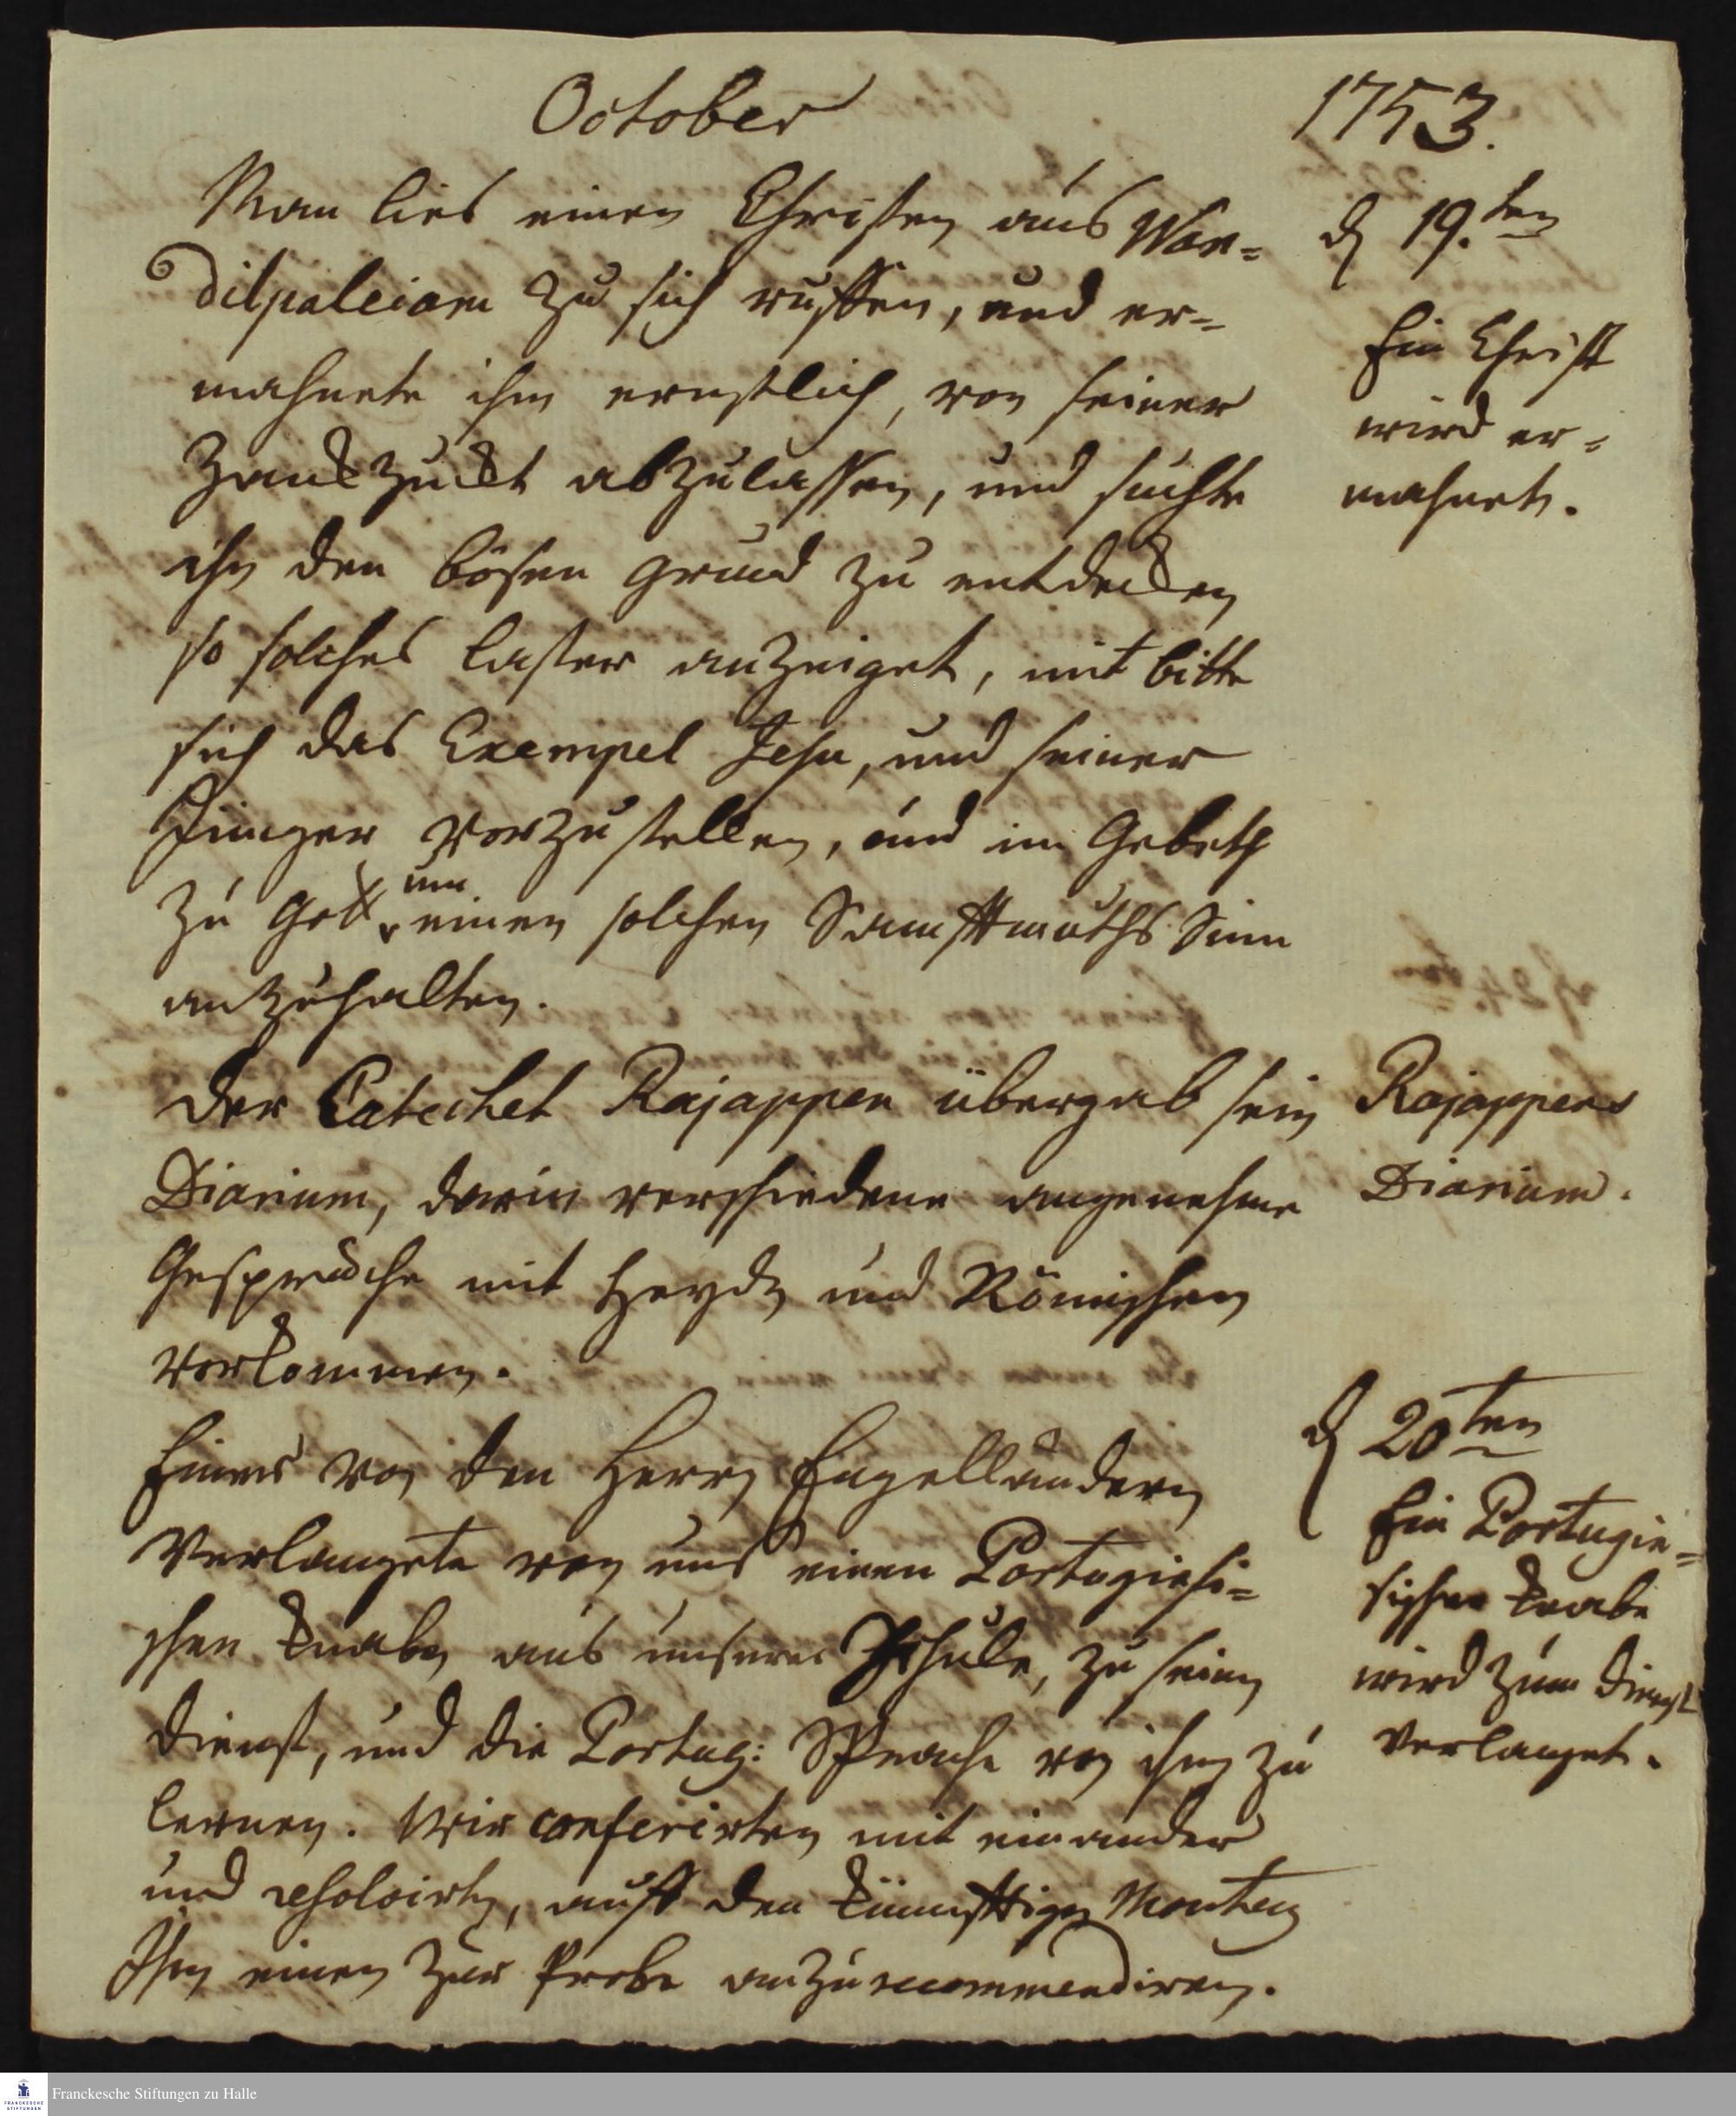 October 1753.
Man lies einen Christen aus Wan-
dilpaleiam zu sich ruffen, und er-
mahnete ihn ernstlich, von seiner
Zanckzucht abzulassen, und suchte
ihn den bösen Grund zu entdecken
so solches Laster anzeiget, mit bitte
sich das Exempel Jesu, und seiner
Jünger vorzustellen, und im Gebeth
zu Gott um einen solchen Sanfftmuths Sinn
anzuhalten.
Der Catechet Rajappen übergab sein
Diarium, darin verschiedene angenehme
Gespräche mit Heyden und Römischen
vorkommen.
Einer von den Herrn Engelländern
Verlangete von uns einen Portugiesi-
schen Knaben aus unserer Schule, zu seinen
Dienst, und die Portug: Sprache von ihm zu
lernen. Wir conferirten mit einander
und resolvirten, auff den künfftigen Montag
Ihm einen zur Probe anzurecommendiren.
d 19.ten
Ein Christ
wird er-
mahnet.
Rajappens
Diarium.
d 20ten
Ein Portugie-
sischer Knabe
wird zum Dienst
verlanget.
Franckesche Stiftungen zu Halle
FRANCKESCHE
STIFTUNGEN